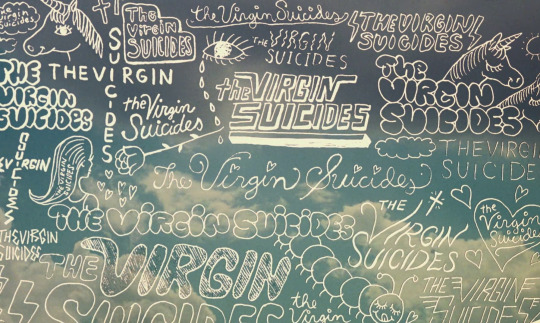 The
Virgin
Suicides
The
VIRGIN
SUICIDES
the Virgin Suicides
THE VIRGIN
SUICIDES
THE VIRGIN
SUICIDES
THE
VIRGIN
SUICIDES
THE VIRGIN
SUICIDES
the Virgin
Suicides
the VIRGIN
SUICIDES
The
VIRGIN
SUICIDES
THE VIRGIN
SUICIDE
VIRGIN
SUICIDES
SUICIDES
The Virgin Suicides
THE VIRGIN SUICIDES
THE
VIRGIN
SUICIDES
the
Virgin
Suicides
THE VIRGIN
SUICIDES
THE VIRGIN
SUICIDES
the
Virgin
THE
VIRGIN
SUICIDES